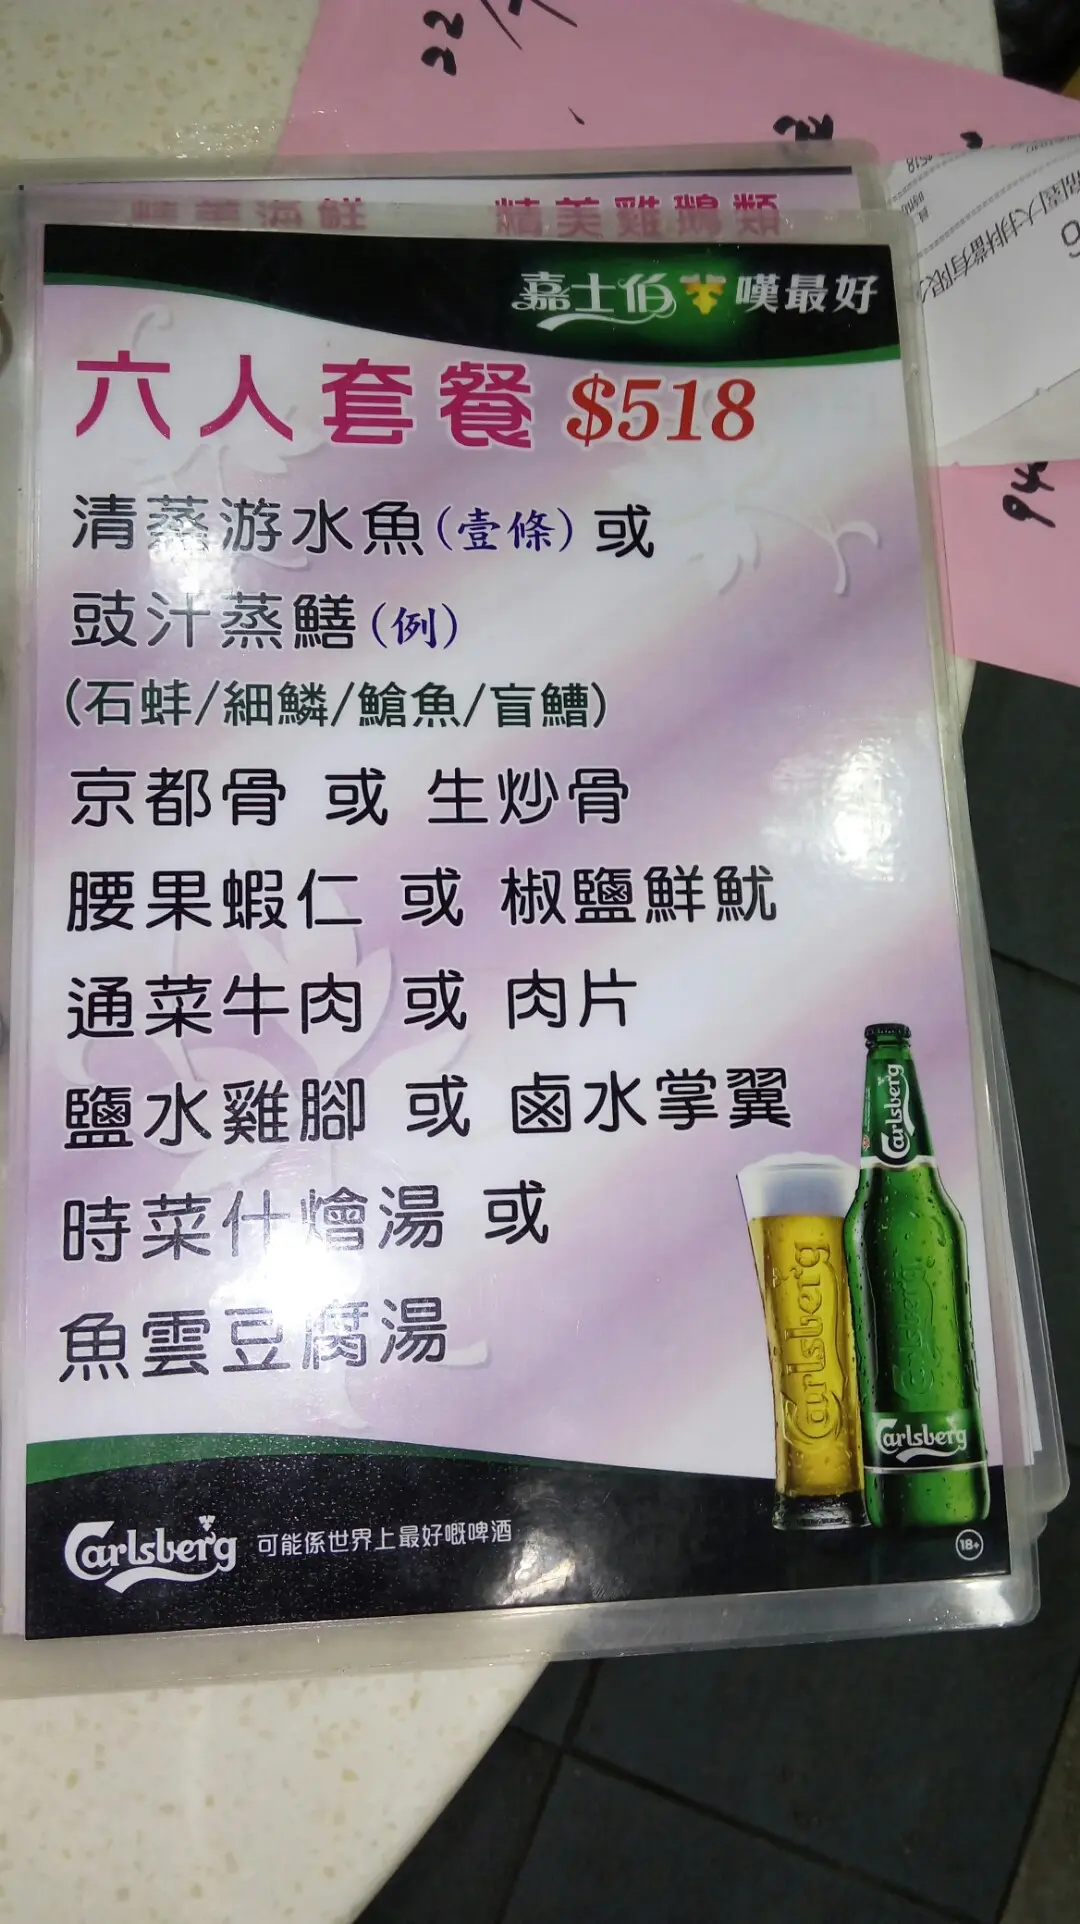 22/7
精美海鮮 精美雞鵝類
嘉士伯 嘆最好
六人套餐 $518
清蒸游水魚(壹條) 或
豉汁蒸鱔(例)
(石蚌/細鱗/鯧魚/盲鰽)
京都骨 或 生炒骨
腰果蝦仁 或 椒鹽鮮魷
通菜牛肉 或 肉片
鹽水雞腳 或 鹵水掌翼
時菜什燴湯 或
魚雲豆腐湯
Carlsberg
Carlsberg
Carlsberg
Carlsberg
Carlsberg 可能係世界上最好嘅啤酒
18+
大排檔有限
94